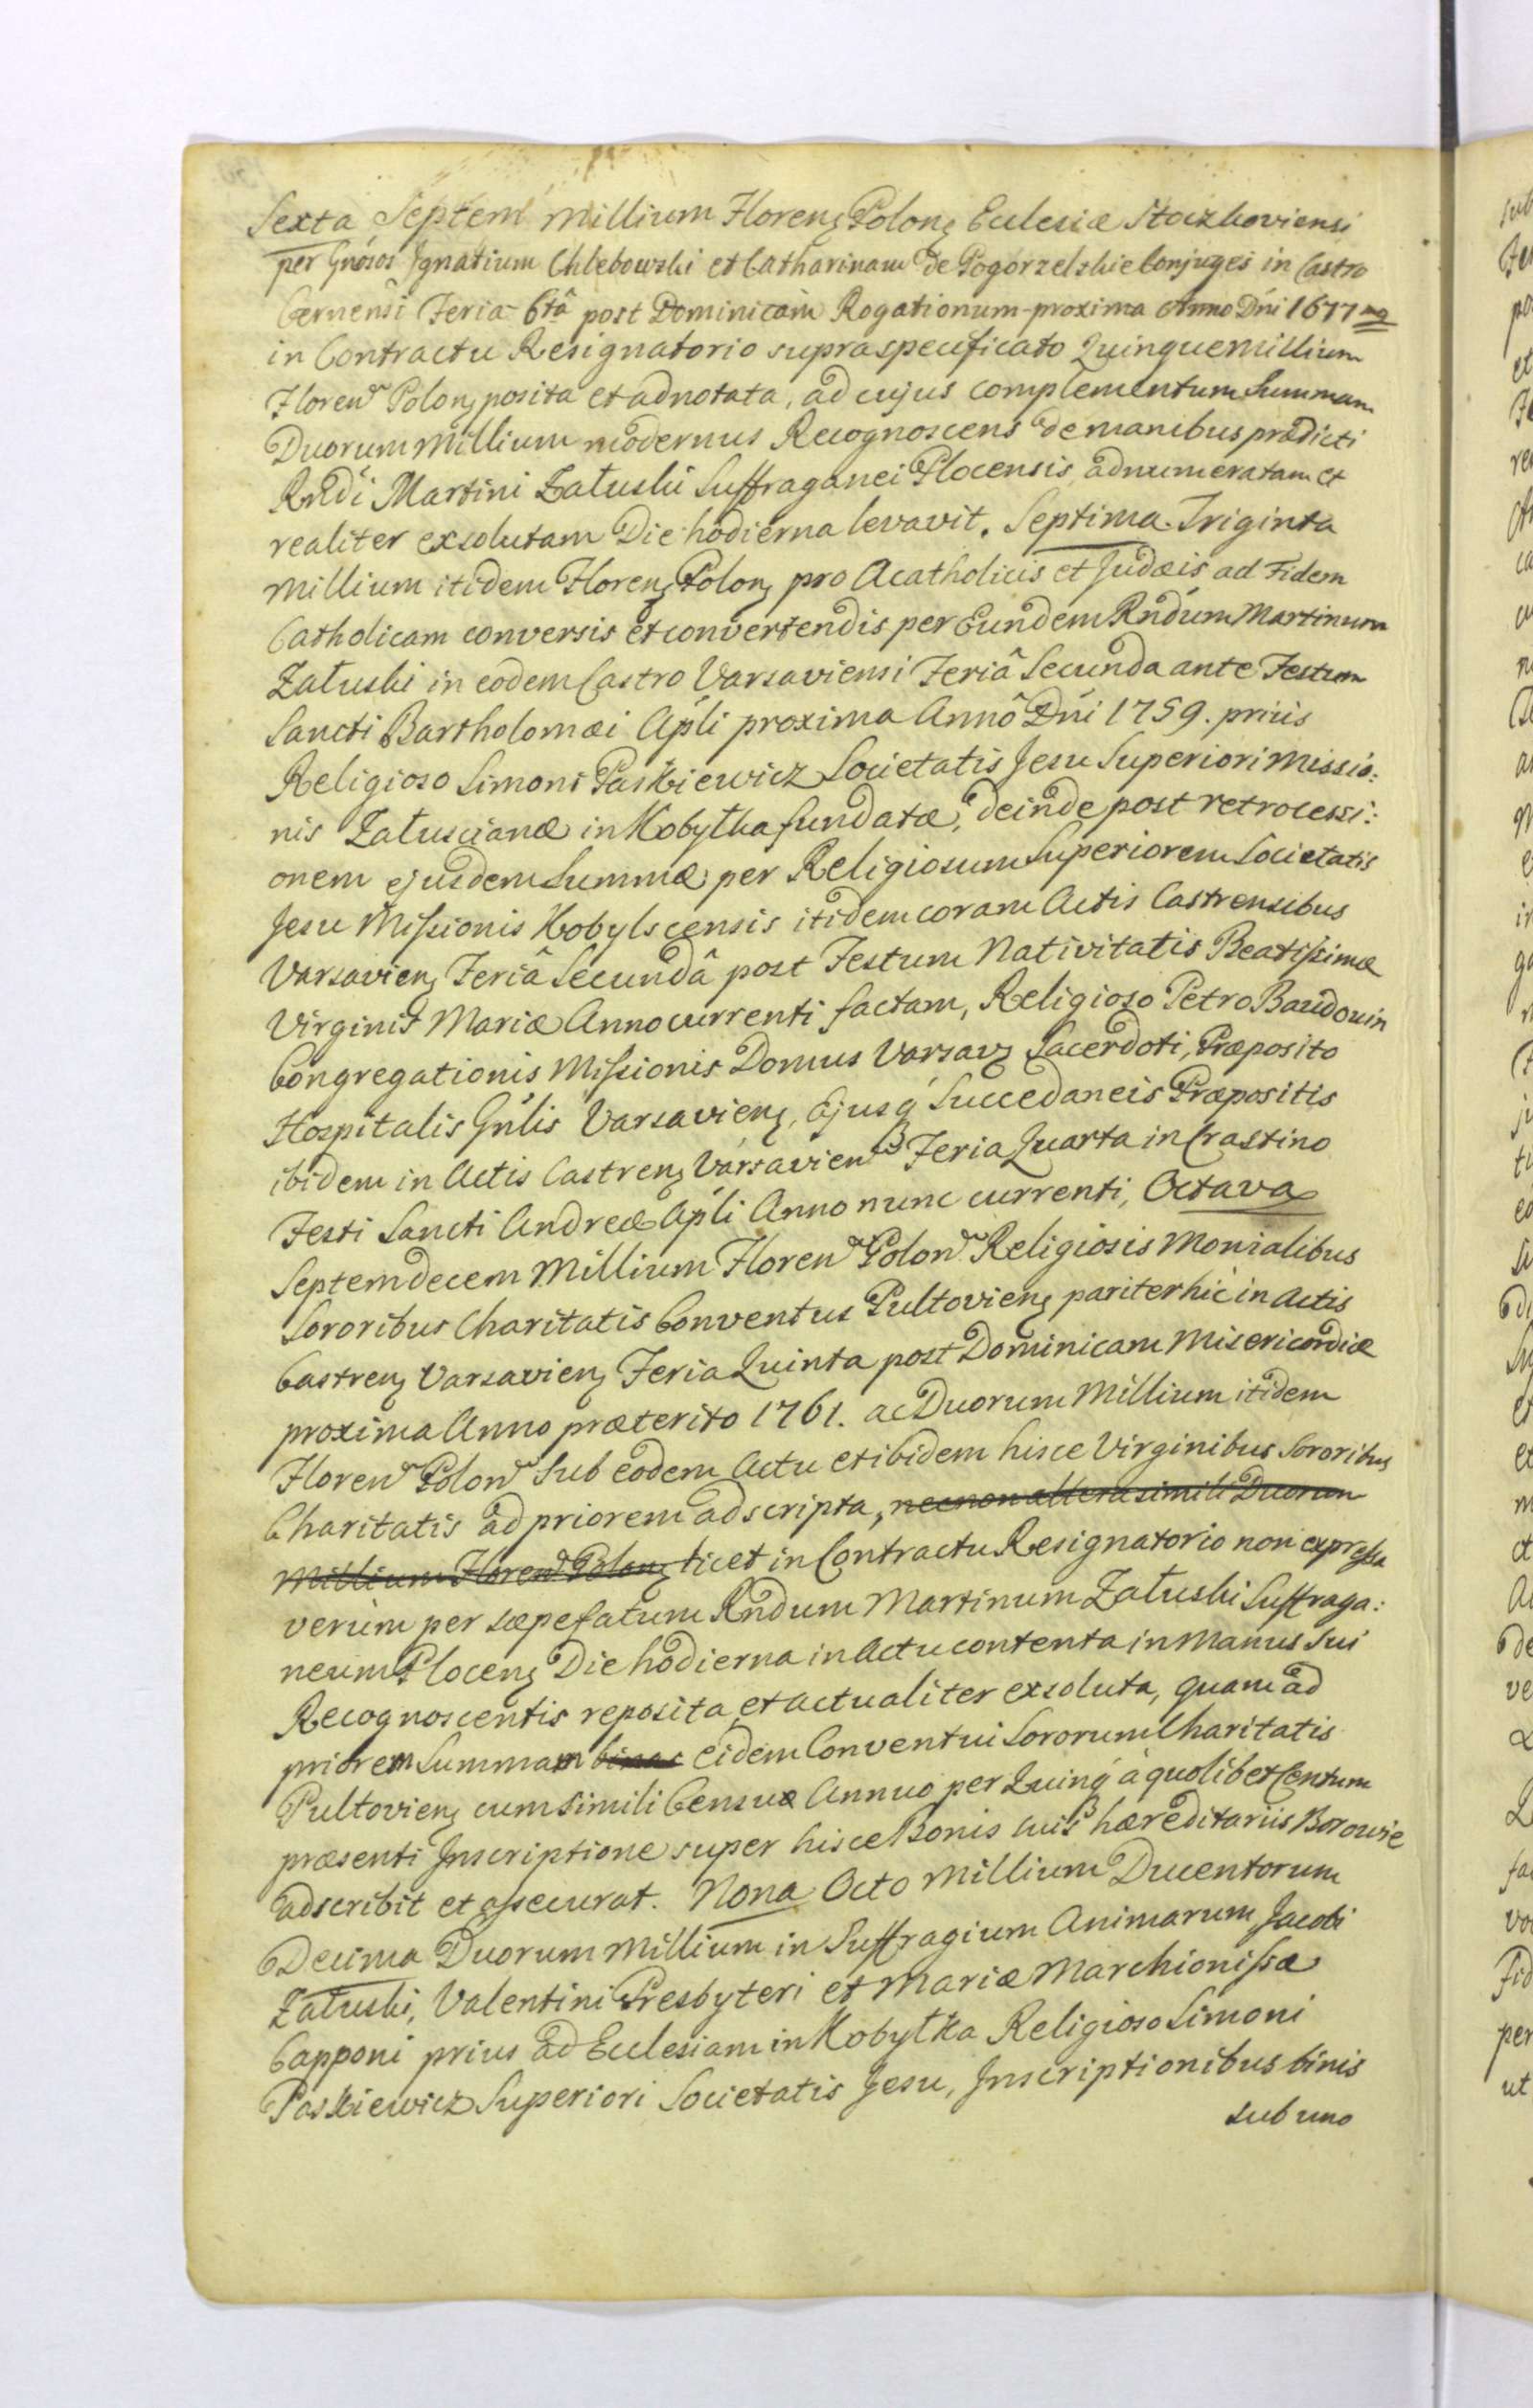 Sexta Septem millium Floren Polon Ecclesiæ Stoczkoviensi
per Gnósos Ignatium Chlebowski et Catharinam de Pogorzelskie Conjuges in Castro
Cernensi Feria 6tâ post Dominicam Rogationum proxima Anno Dni 1677mo
in Contractu Resignatorio supraspecificato Quinque millium
Floren Polon posita et adnotata, ad cujus complementum Summam
Duorum Millium modernus Recognoscens de manibus prædicti
Rndi Martini Załuski Suffraganei Plocensis adnumeratam et
realiter exsolutam Die hodierna levavit. Septima. Triginta
Millium itidem Floren Polon pro Acatholicis et Judæis ad Fidem
Catholicam conversis et convertendis per Eundem Rndum Martinum
Załuski in eodem Castro Varsaviensi Feriâ Secunda ante Festum
Sancti Bartholomæi Apli proxima Annô Dni 1759. prius
Religioso Simoni Paskiewicz Societatis Jesu Superiori Missio:
nis Załuscianæ in Kobyłka fundatæ, deinde post retrocessi:
onem ejusdem Summæ per Religiosum Superiorem Societatis
Jesu Missionis Kobylscensis itidem coram Actis Castrensibus
Varsavien Feriâ Secundâ post Festum Nativitatis Beatissimæ
Virginis Mariæ Anno currenti factam, Religioso Petro Baudouin
Congregationis Missionis Domus Varsav Sacerdoti, Præposito
Hospitalis Gnlis Varsavien, Ejusq Succedaneis Præpositis
ibidem in Actis Castren Varsavien Feria Quarta in Crastino
Festi Sancti Andreæ Apli Anno nunc currenti, Octava
Septemdecem Millium Floren Polon Religiosis Monialibus
Sororibus Charitatis Conventus Pultovien pariter hic in Actis
Castren Varsavien Feria Quinta post Dominicam Misericordiæ
proxima Anno præterito 1761. ac Duorum Millium itidem
Floren Polon Sub eodem Actu et ibidem hisce Virginibus Sororibus
Charitatis ad priorem adscripta, necnon altera simili Duorum
Millium Floren Polon licet in Contractu Resignatorio non expressa
verum per sæpefatum Rndum Martinum Załuski Suffraga:
neum Plocen Die hodierna in Actu contenta in Manus Sui
Recognoscentis reposita et actualiter exsoluta, quam ad
priorem Summam binas eidem Conventui Sororum Charitatis
Pultovien cum simili Censu Annuo per Quinq à quolibet Centum
præsenti Inscriptione super hisce Bonis suis hæreditariis Borowie
adscribit et assecurat. Nona Octo Millium Ducentorum
Decima Duorum Millium in Suffragium Animarum Jacobi
Załuski, Valentini Presbyteri et Mariæ Marchionissæ
Capponi prius ad Ecclesiam in Kobyłka Religioso Simoni
Paskiewicz Superiori Societatis Jesu, Inscriptionibus binis
sub uno